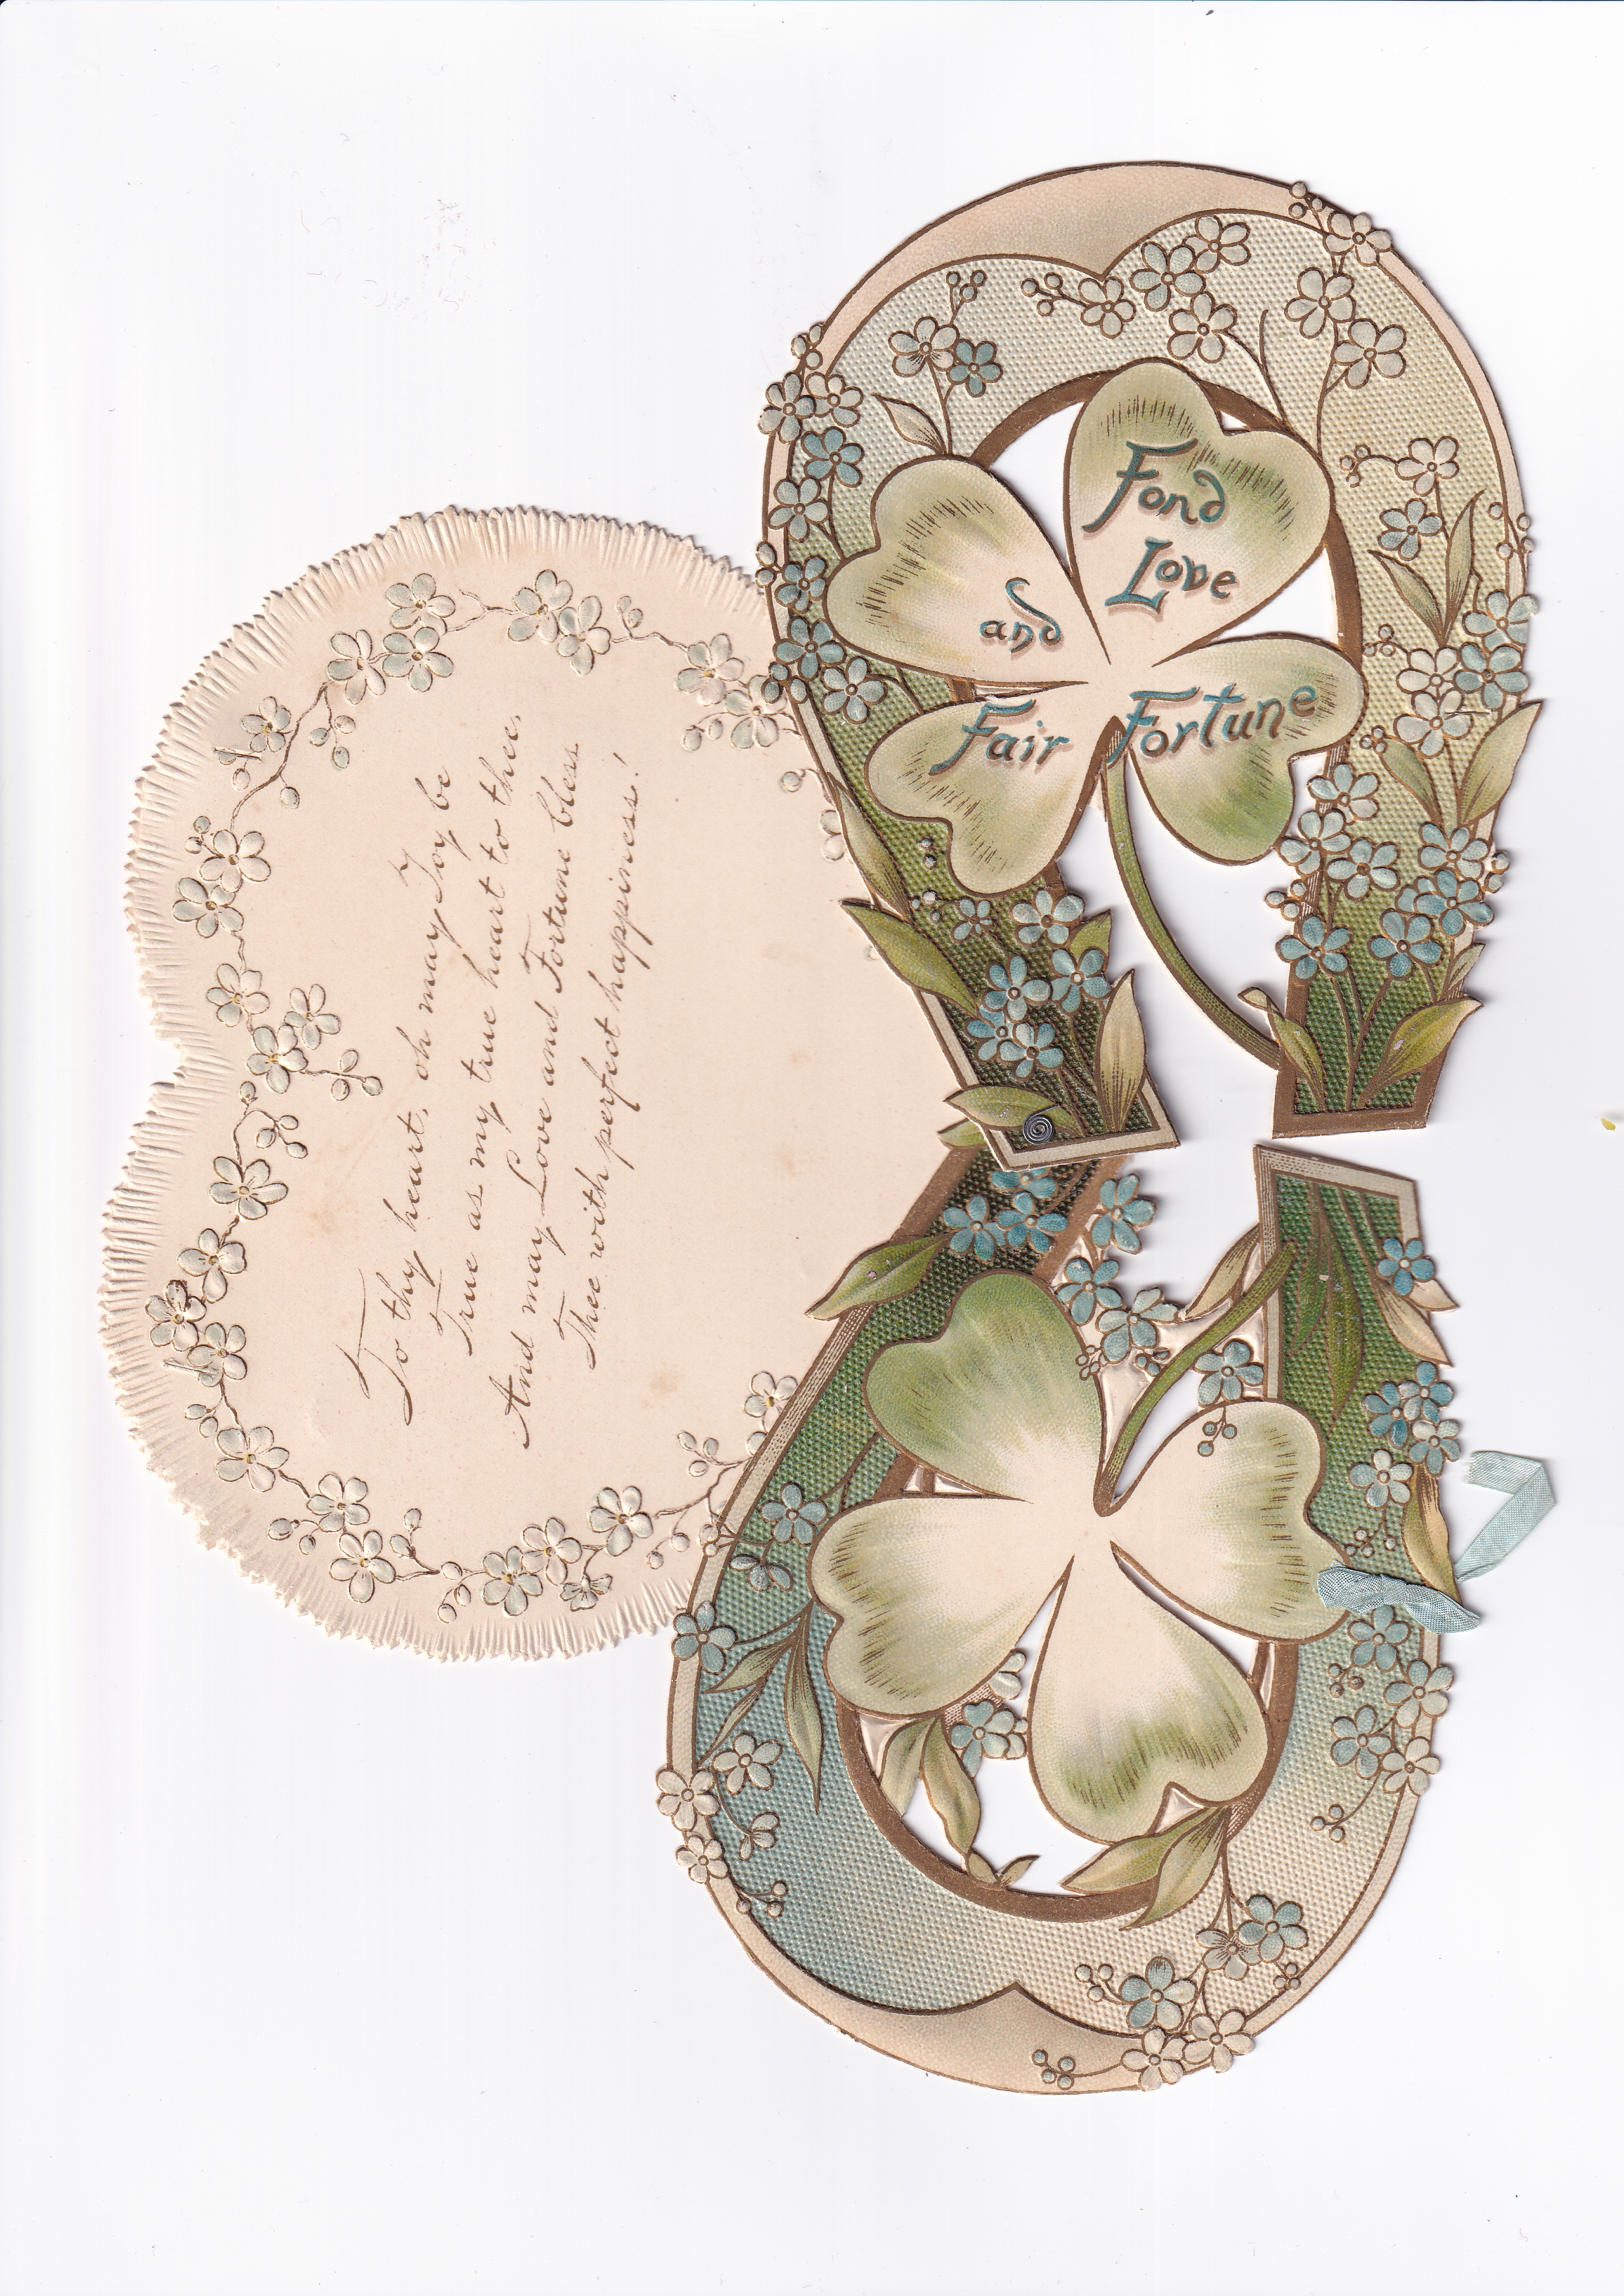 Fond
Love
and
Fair Fortune
To thy heart, oh may Joy be
True as my true heart to thee,
And may Love and Fortune bless
Thee with perfect happiness!